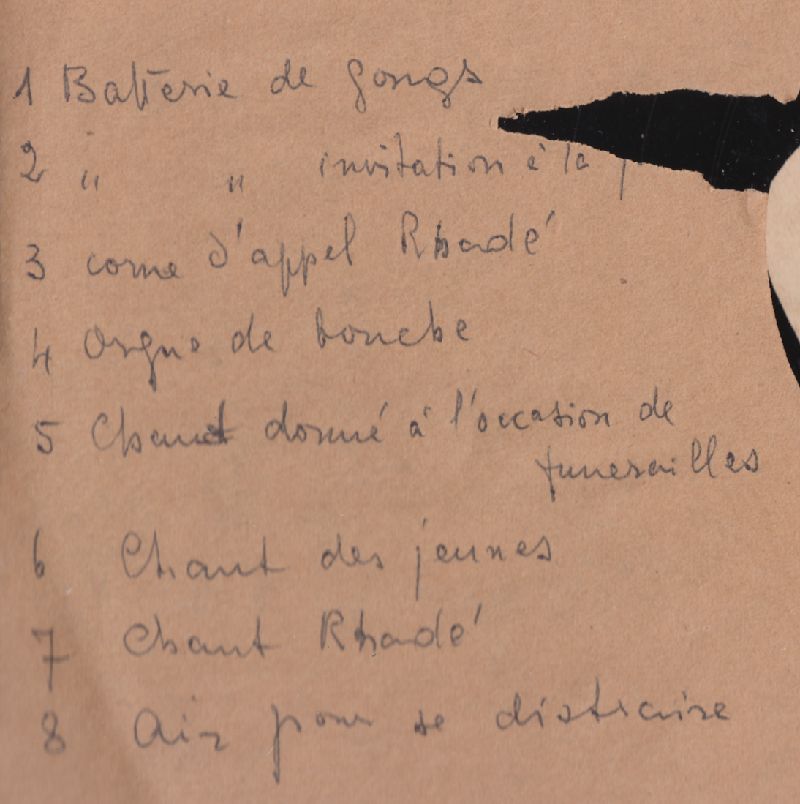 1 Batterie de gongs
2 " " invitation à la
3 corne d'appel Rhadé
4 Orgue de bouche
5 Chant donné à l'occasion de
funerailles
6 Chant des jeunes
7 Chant Rhadé
8 Air pour se distraire